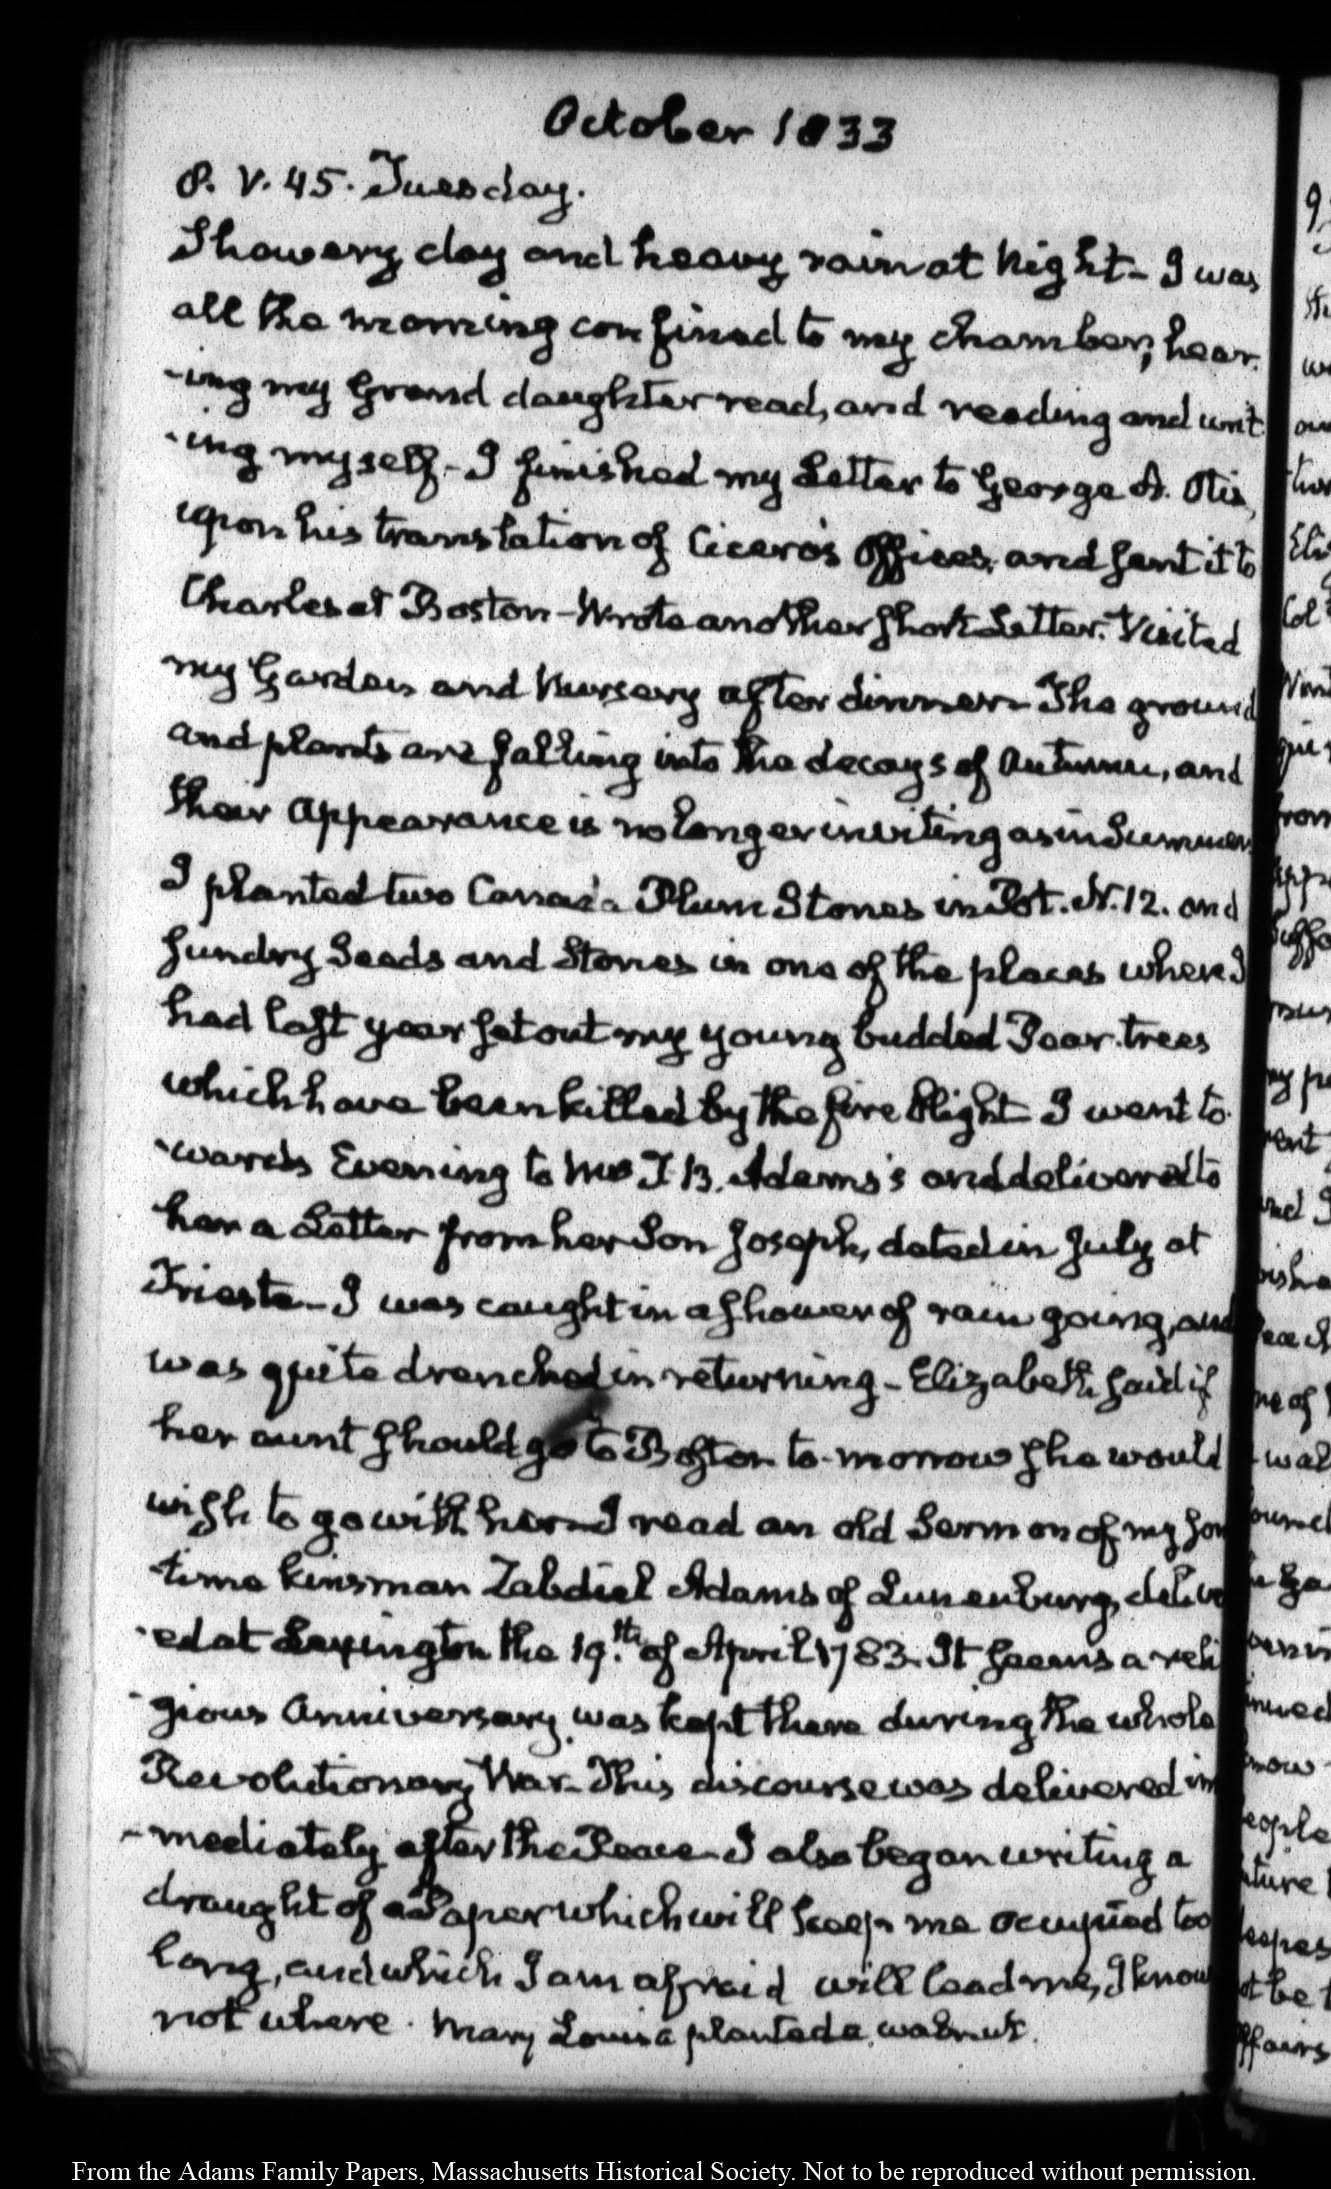 October 1833
8. V. 45. Tuesday.
Showery day and heavy rain at Night - I was
all the morning confined to my chamber, hear-
-ing my Grand daughter read, and reading and writ
-ing myself - I finished my Letter to George A. Otis,
upon his translation of Cicero's Offices, and sent it to
Charles at Boston - Wrote another short Letter. Visited
my Garden and Nursery after dinner - The ground
and plants are falling into the decays of Autumn, and
their appearance is no longer inviting as in Summer.
I planted two Canada Plum Stones in Pot. N. 12. and
sundry Seeds and Stones in one of the places where I
had last year set out my young budded Pear-trees
which have been killed by the fire blight - I went to-
-wards Evening to Mrs T. B. Adams's and delivered to
her a Letter from her Son Joseph, dated in July at
Trieste - I was caught in a shower of rain going, and
was quite drenched in returning - Elizabeth said if
her aunt should go to Boston to-morrow she would
wish to go with her - I read an old Sermon of my some
-time kinsman Zabdiel Adams of Lunenburg, deliver
-ed at Lexington the 19.th of April 1783. It seems a reli
-gious Anniversary was kept there during the whole
Revolutionary War - This discourse was delivered im
-mediately after the Peace - I also began writing a
draught of a Paper which will keep me occupied too
long, and which I am afraid will lead me, I know
not where. Mary Louisa planted a walnut.
From the Adams Family Papers, Massachusetts Historical Society. Not to be reproduced without permission.